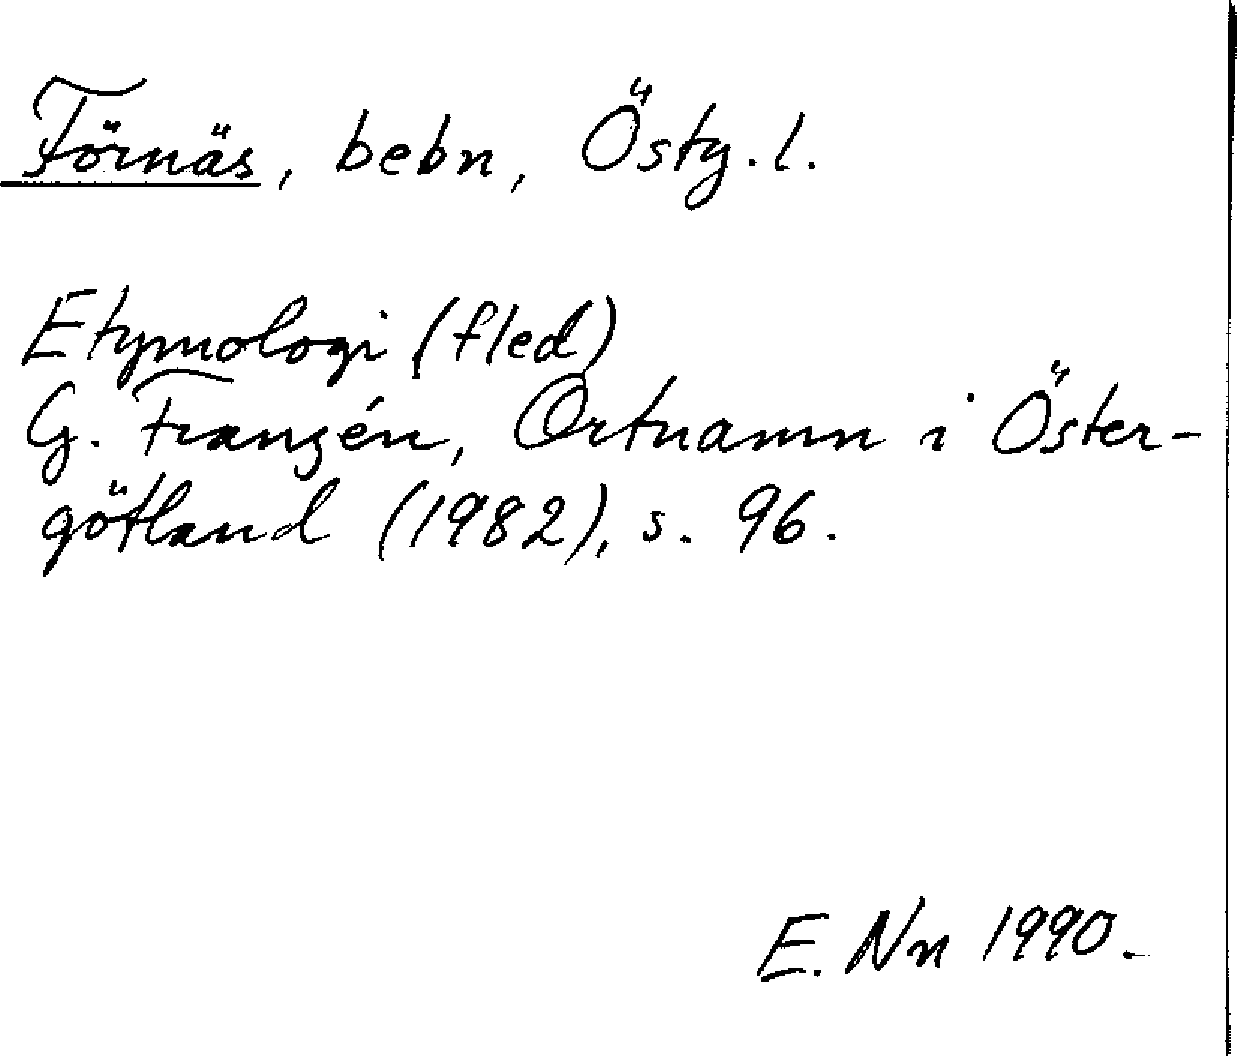 Förnäs, bebn, Östg. l.
Etymologi (fled)
G. Franzén, Ortnamn i Öster-
götland (1982), s. 96.
E. Nn 1990.